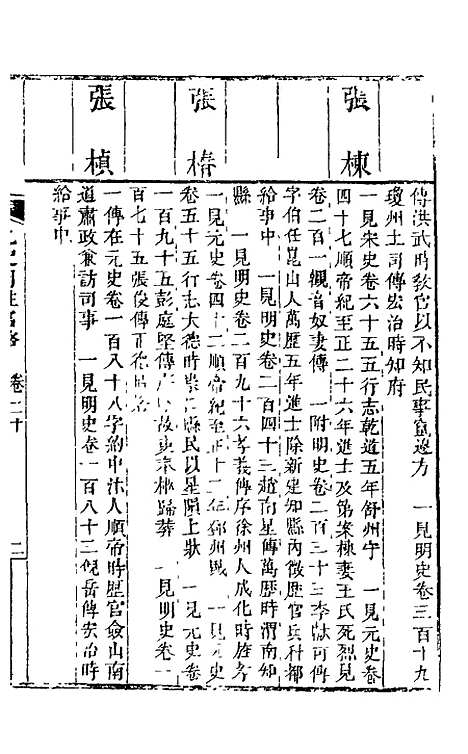 傳洪武時教官以不知民事竄遠方　一見明史卷三百十九
瓊州土司傳宏治時知府
張棟
一見宋史卷六十五五行志乾道五年舒州守　一見元史卷
四十七順帝紀至正二十六年進士及第案棟妻王氏死烈見
卷二百一觀音奴妻傳　一附明史卷二百三十三李獻可傳
字伯任崑山人萬歷五年進士除新建知縣內徵歷官兵科都
給事中　一見明史卷二百四十三趙南星傳萬歷時渭南知
縣　一見明史卷二百九十六孝義傳序徐州人成化時旌孝
張椿
一見元史卷四十二順帝紀至正十二年鄧州　一見元史
卷五十五行志大德時　縣民以星隕上狀　一見元史卷
一百九十五彭庭堅傳　故吏奉柩歸葬　一見明史卷一
百七十五張俊傳正德
張楨
一傳在元史卷一百八十八字約中汴人順帝時歷官僉山南
道肅政兼訪司事　一見明史卷一百八十三倪岳傳宏治時
給事中
卷二十
二